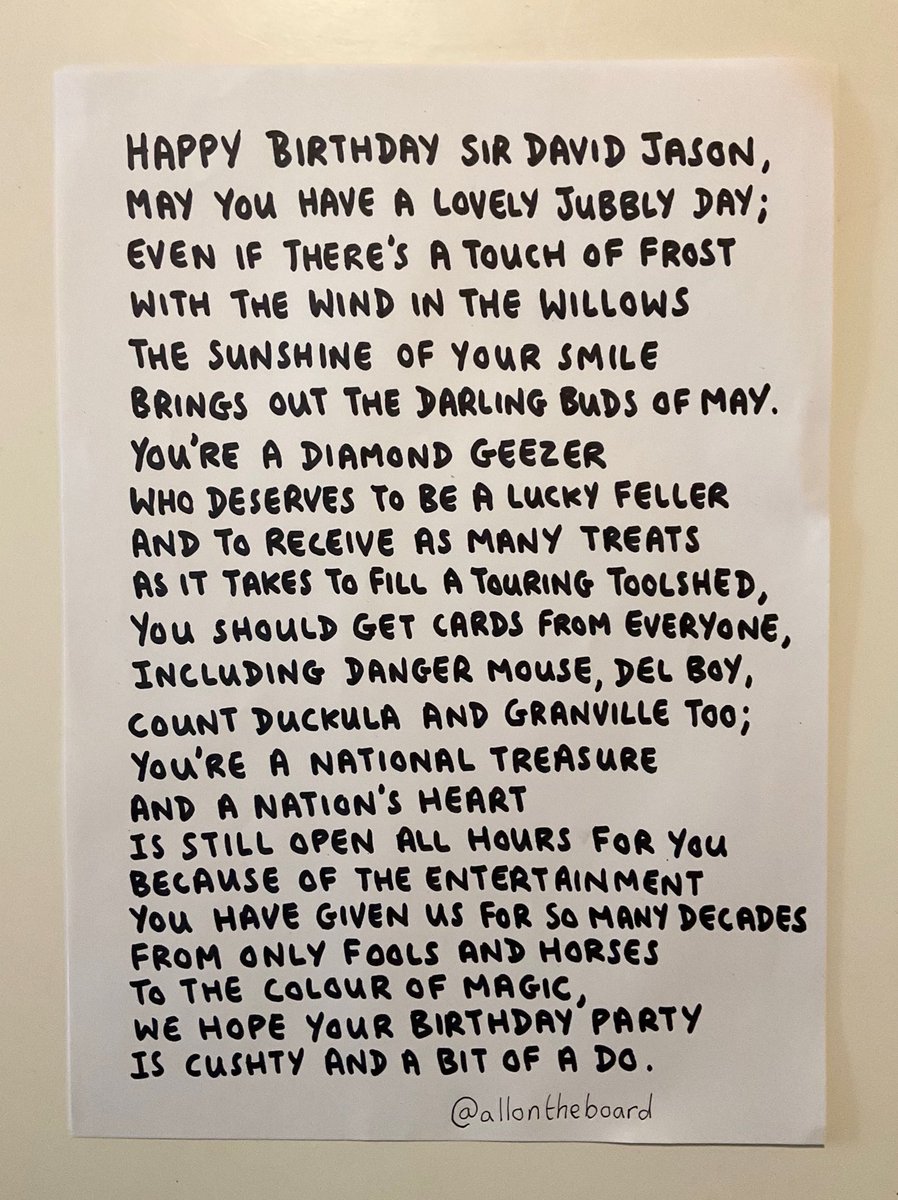 HAPPY BIRTHDAY SIR DAVID JASON,
MAY YOU HAVE A LOVELY JUBBLY DAY;
EVEN IF THERE'S A TOUCH OF FROST
WITH THE WIND IN THE WILLOWS
THE SUNSHINE OF YOUR SMILE
BRINGS OUT THE DARLING BUDS OF MAY.
YOU'RE A DIAMOND GEEZER
WHO DESERVES TO BE A LUCKY FELLER
AND TO RECEIVE AS MANY TREATS
AS IT TAKES TO FILL A TOURING TOOLSHED,
YOU SHOULD GET CARDS FROM EVERYONE,
INCLUDING DANGER MOUSE, DEL BOY,
COUNT DUCKULA AND GRANVILLE TOO;
YOU'RE A NATIONAL TREASURE
AND A NATION'S HEART
IS STILL OPEN ALL HOURS FOR YOU
BECAUSE OF THE ENTERTAINMENT
YOU HAVE GIVEN US FOR SO MANY DECADES
FROM ONLY FOOLS AND HORSES
TO THE COLOUR OF MAGIC,
WE HOPE YOUR BIRTHDAY PARTY
IS CUSHTY AND A BIT OF A DO.
@allontheboard